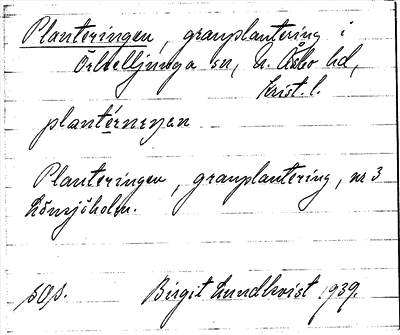 Planteringen, granplantering i
Örkelljunga sn, N. Åsbo hd,
Krist. l.
plantérnengen
Planteringen, granplantering, nr 3
Lönsjöholm.
sAs. Birgit Lundkvist 1939.